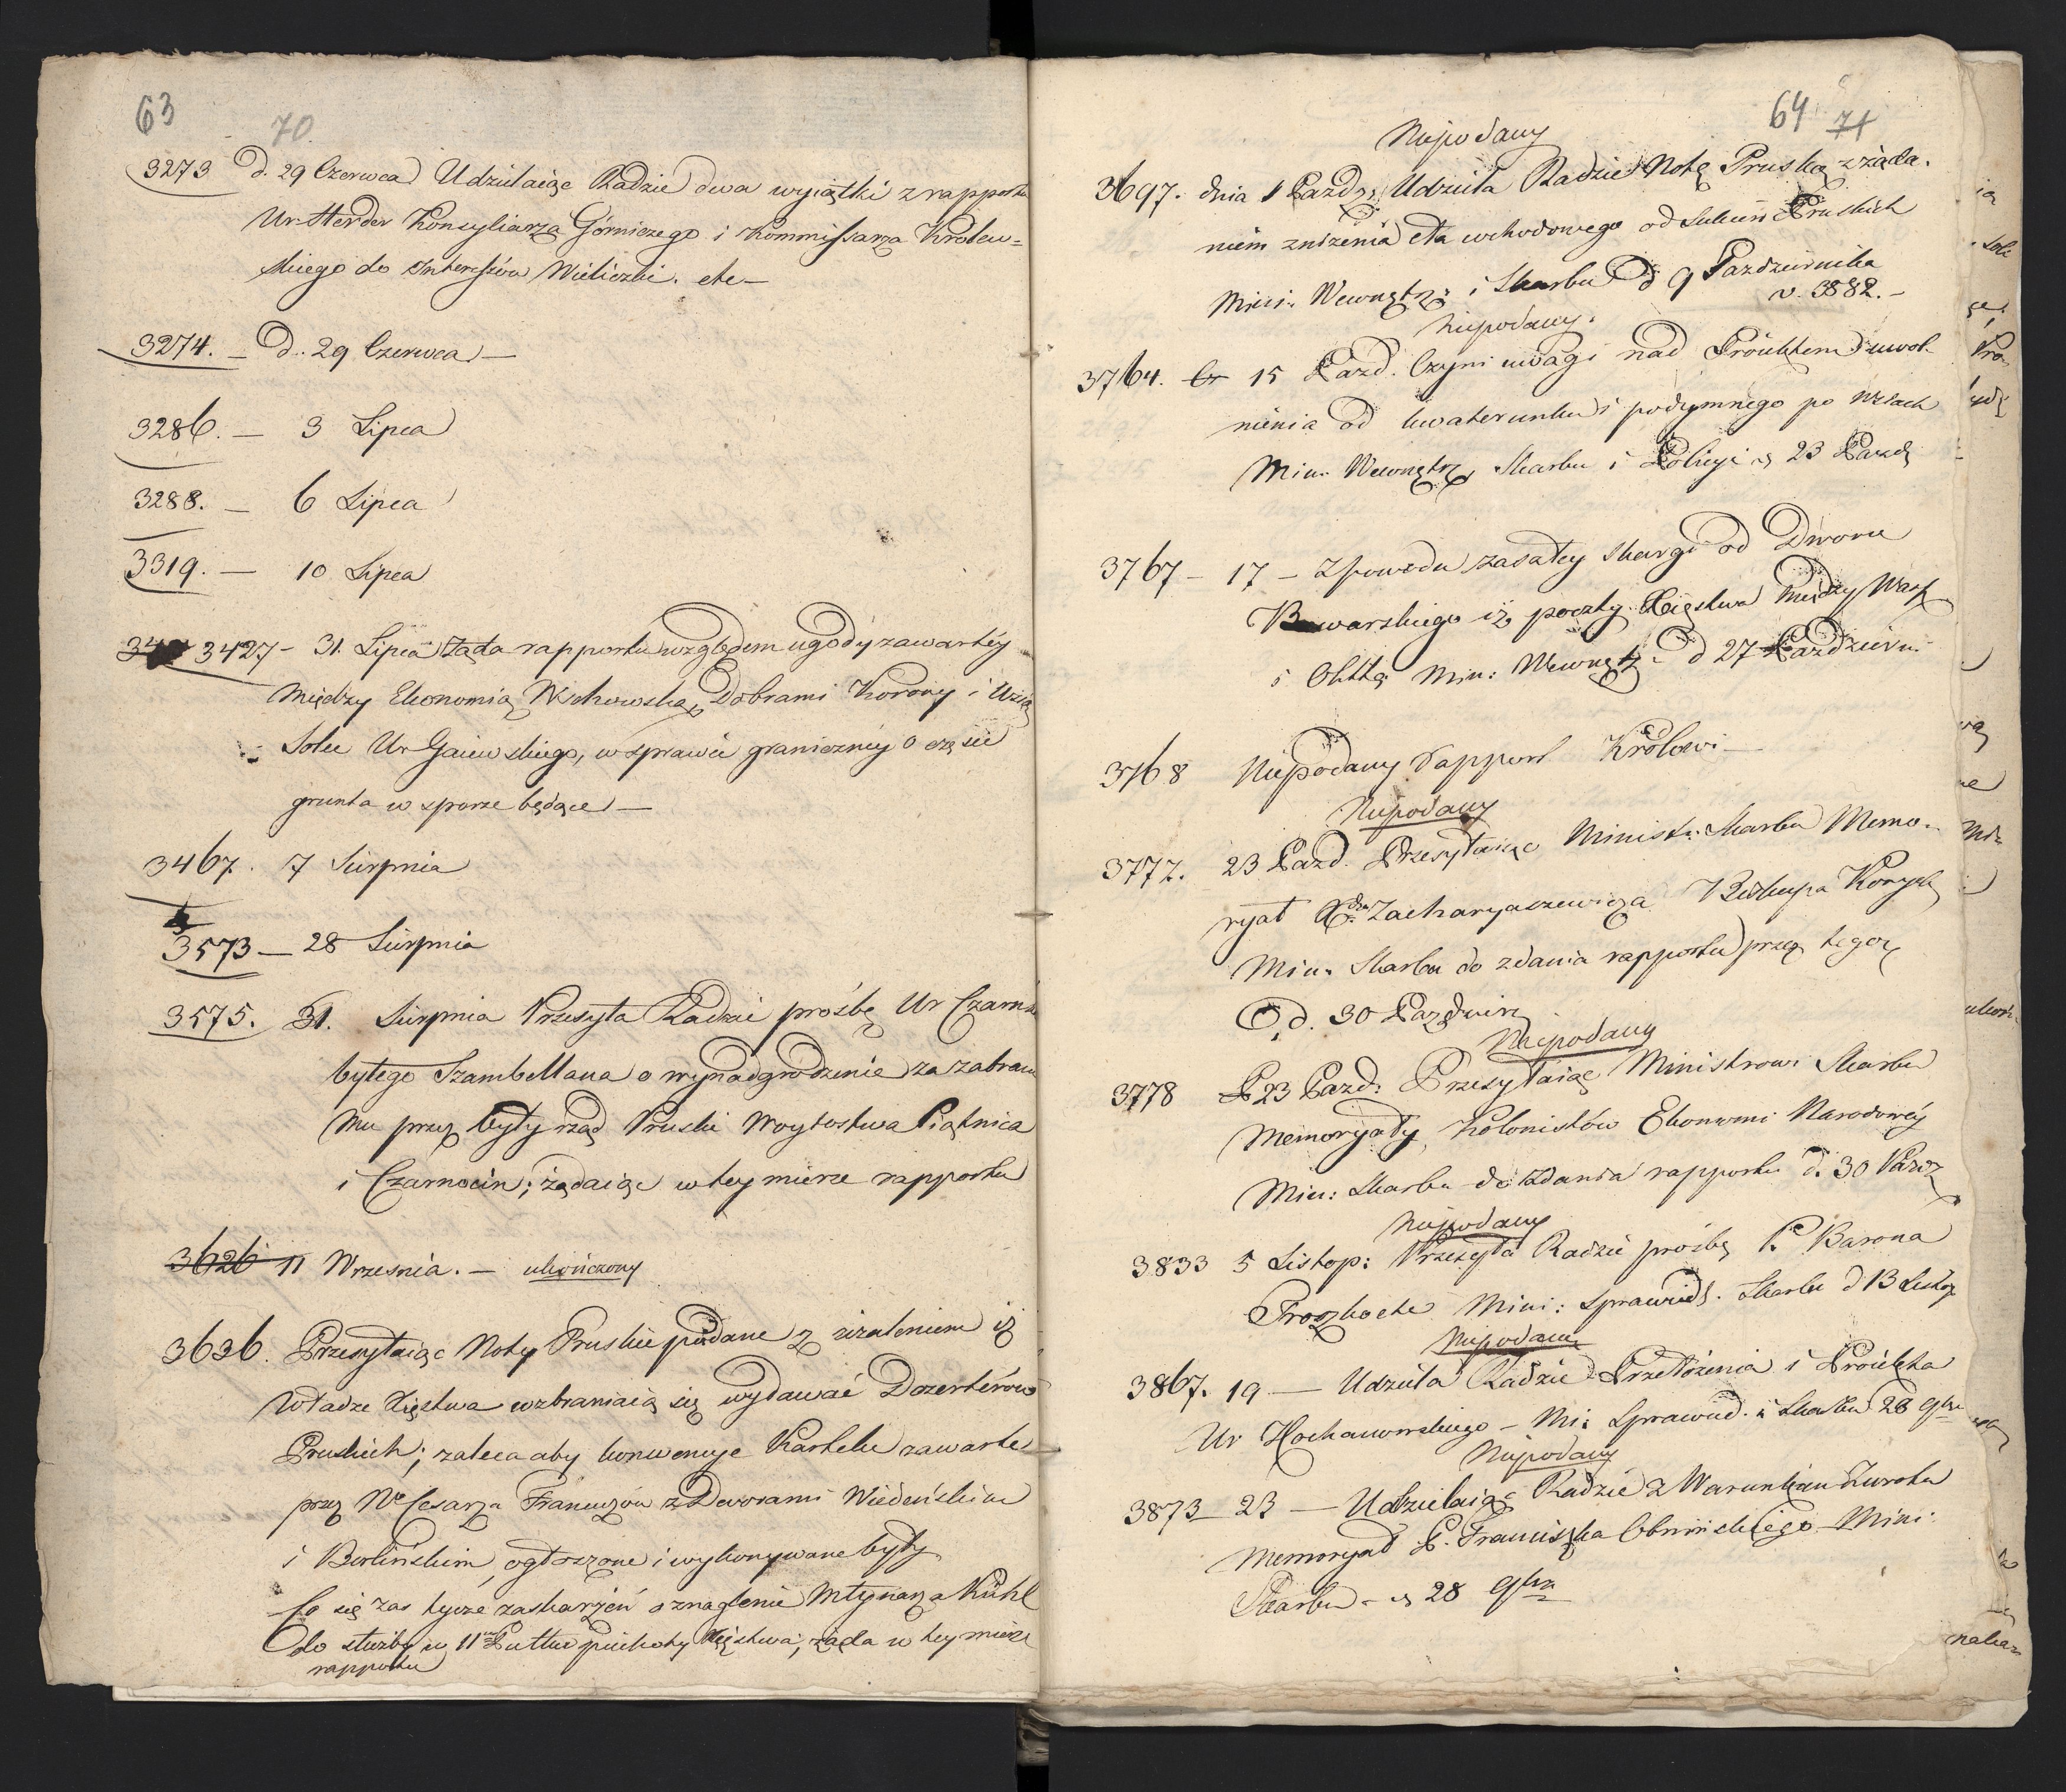 63
70.
3273 d. 29 Czerwca Udzielaiąc Radzie dwa wyiątki z rapportu
Ur Herder Konsyliarza Górniczego i Kommissarza Królew=
skiego do Interessów Wieliczki. etc —
3274. — d. 29 Czerwca —
3286. — 3 Lipca
3288. — 6 Lipca
3319. — 10 Lipca
3427 – 31. Lipca Żąda rapportu względem ugody zawartéy
między Ekonomią Wschowską, Dobrami Korony i
Ur Gaiewskiego, w sprawie granicznéy o części
grunta w sporze będące —
3467. 7 Sierpnia
3573 — 28 Sierpnia
3575. 31. Sierpnia Przesyła Radzie prośbę Ur
byłego Szambellana o wynadgrodzenie za zabrane
mu przez były rząd Pruski Woytostwa Piątnica
i Czarnocin; żądaiąc w tey mierze rapportu
3626 11 Września. — ukończony
3636. Przesyłaiąc Noty Pruskie podane z użaleniem iż
Władze Xięstwa wzbraniaią się wydawać Dezerterów
Pruskich; zaleca aby konwencye Kartelu zawarte
przez N. Cesarza Francuzów z Dworami Wiedeńskim
i Berlińskim, ogłoszone i wykonywane były
Co się zas tycze zaskarżeń o znaglenie Młynarza Kühl
do służby w 11 Pułku piechoty Xięstwa, żąda w tey mierze
rapportu
64 71
Niepodany
3697. dnia 1 Pazdz: Udziela Radzie Notę Pruską z żąda.
niem zniżenia cła wchodowego od Sukien Pruskich
Mini: Wewnętrz: i Skarbu d 9 Pazdziernika
v. 3882. –
Niepodany.
3764. 15 Pazd. Czyni uwagi nad Proiektem uwol.
nienia od kwaterunku i podymnego po wsiach
Min. Wewnętrz, Skarbu i Policyi d 23 Pazdz
3767 – 17 – Z powodu zaszłey skargi od Dworu
Bawarskiego iż poczty Xięstwa między
i Min: Wewnętrz: d 27 Pazdziern:
3768 Niepodany Rapport Królowi —
Niepodany
3777. 23 Pazd. Przesyłaiąc Minist: Skarbu Memo.
ryał X. Zacharyaszewicza Biskupa
Min. Skarbu do zdania rapportu przez tegoż
d. 30 Pazdzier
Niepodany
3778 23 Pazd: Przesyłaiąc Ministrowi Skarbu
Memoryały, Kolonistów Ekonomi Narodowéy
Min: Skarbu do zdania rapportu d. 30 Pazdz
Niepodany
3833 5 Listop: Przesyła Radzie prośbę P. Barona
Mini: Sprawied. Skarbu d 13 Listop
Niepodany
3867. 19 — Udziela Radzie Przełożenia i Proiekta
Ur Kochanowskiego – Mi: Sprawied. i Skarbu 28 9bra
Niepodany
3873 – 23 — Udzielaiąc Radzie
Memoryał P. Franciszka Mini:
Skarbu – d 28 9bra